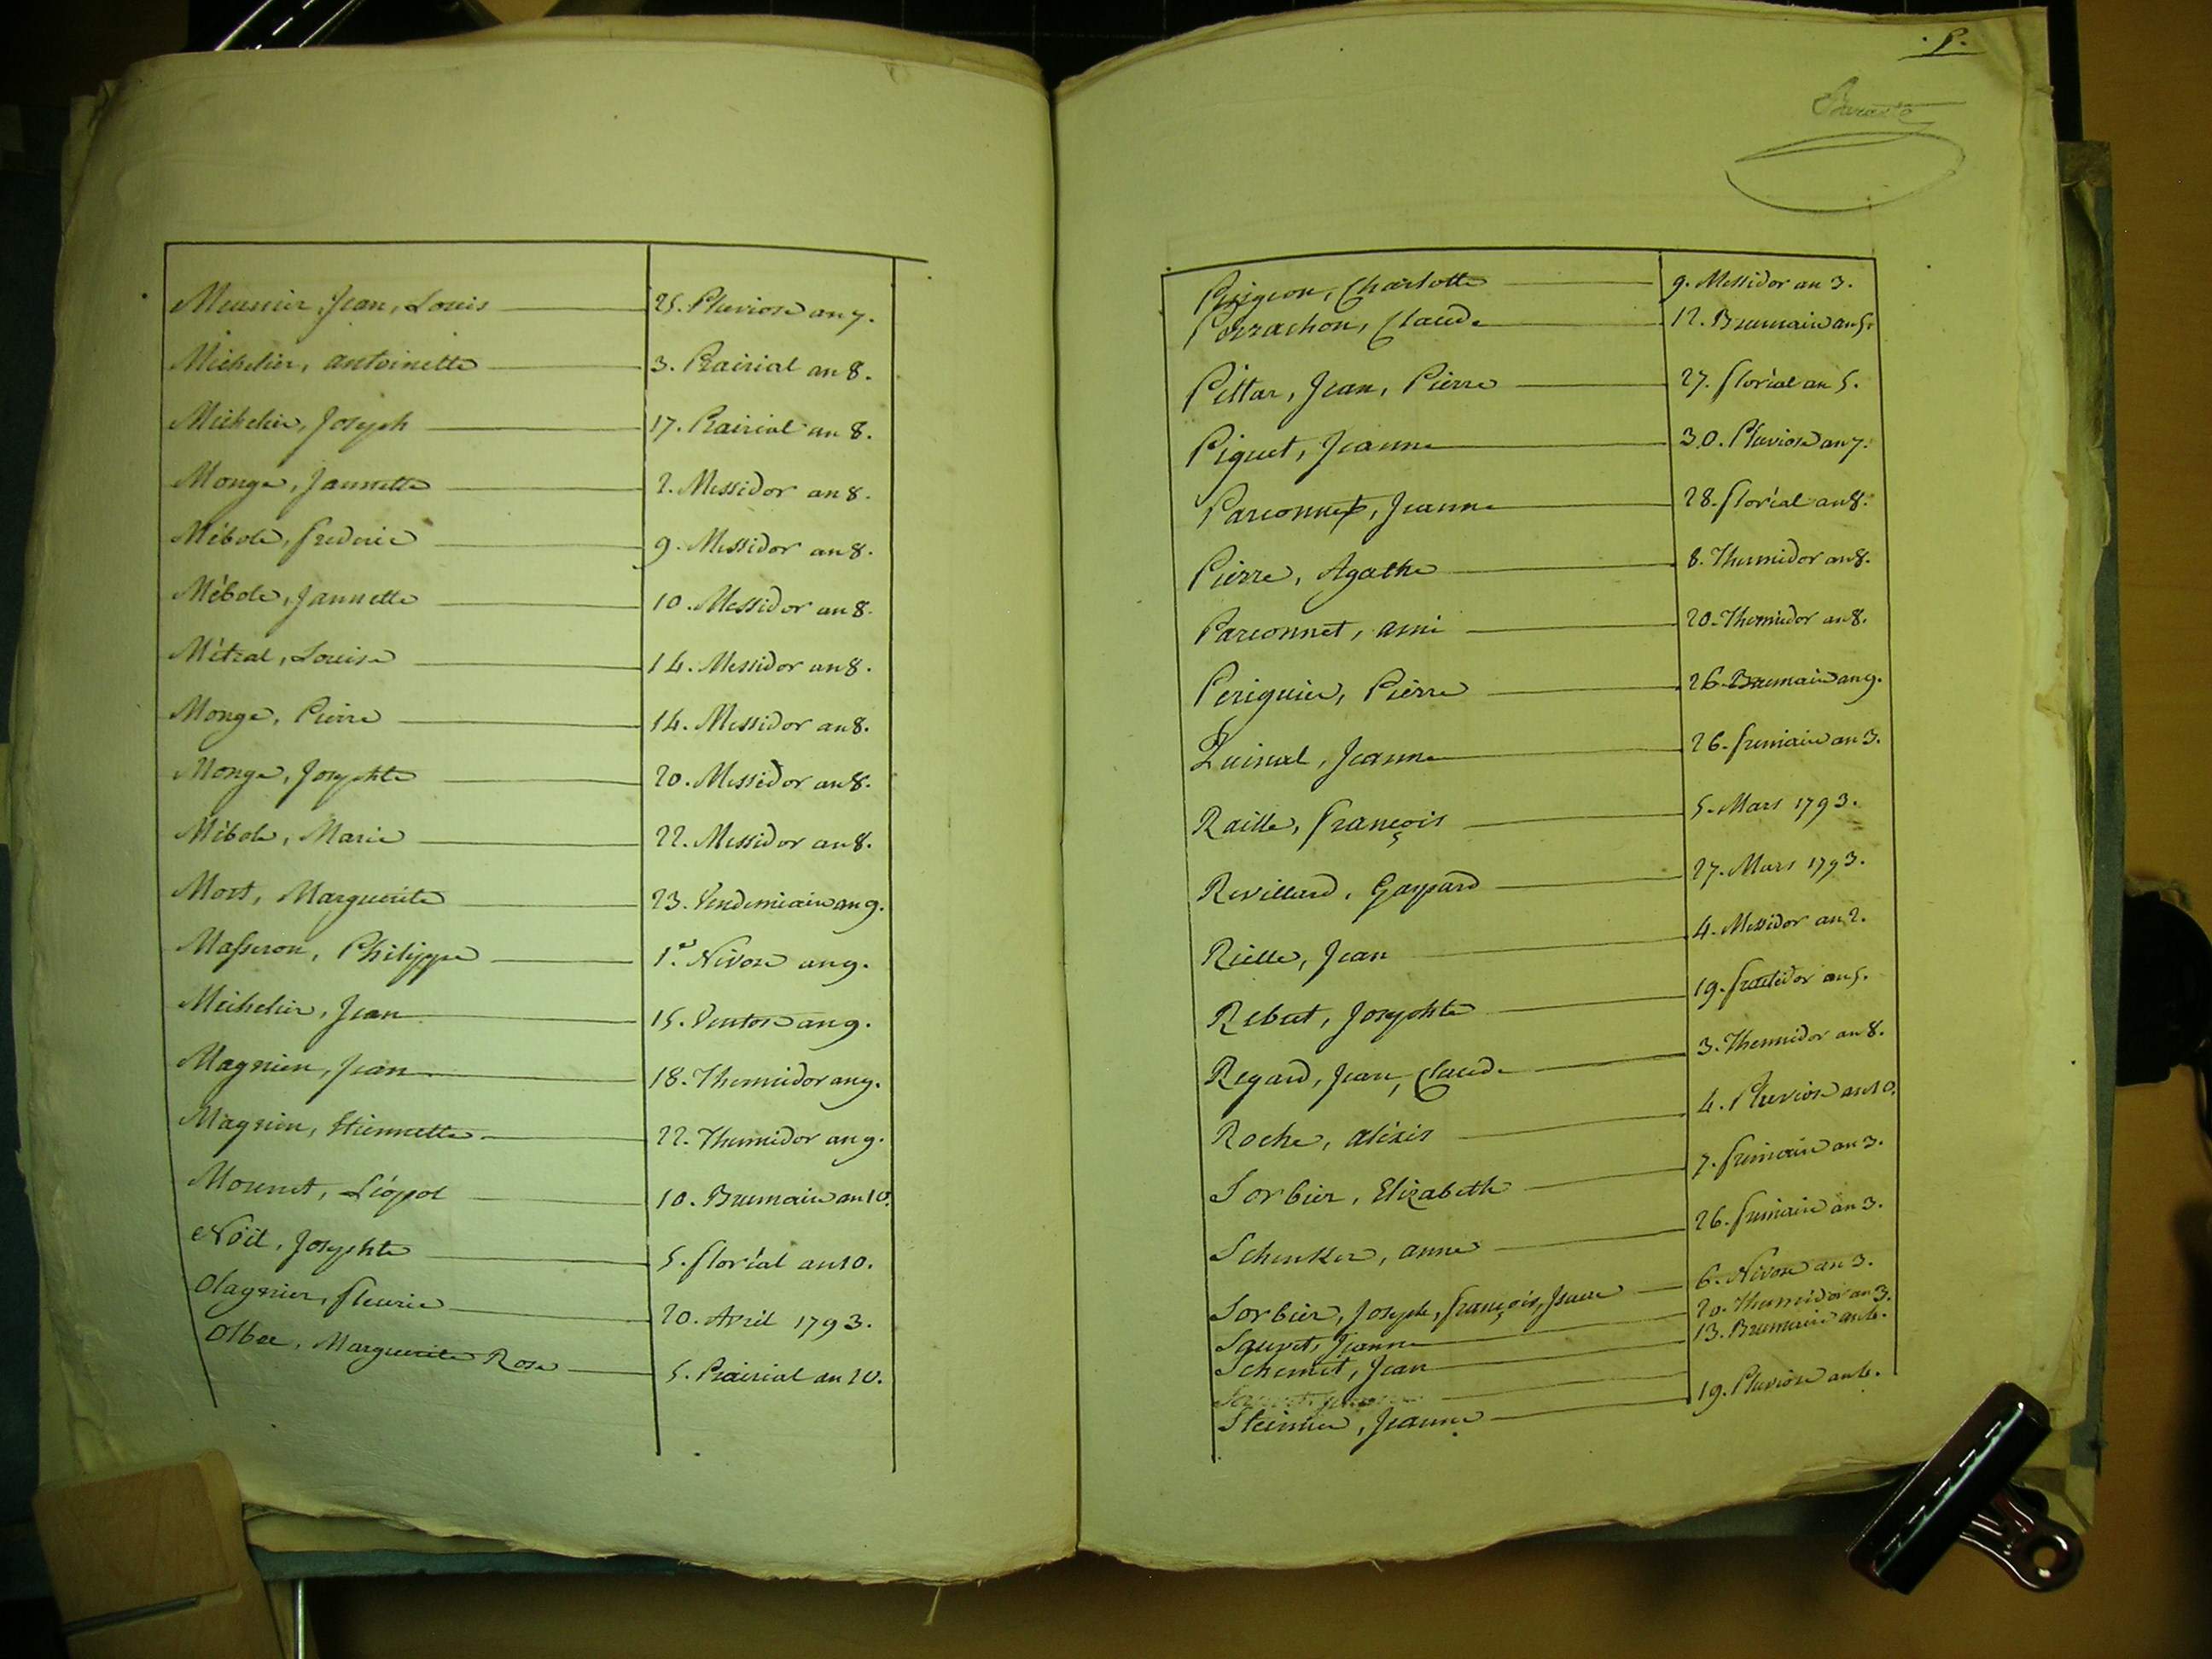 Meunier, Jean, Louis 25. Pluviose an 7.
Michelier, antoinette 3. Prairial an 8.
Michelier, Joseph 17. Prairial an 8.
Monge, Jannette 2. Messidor an 8.
Mébole, frederic 9. Messidor an 8.
Mébole, Jannette 10. Messidor an 8.
Métral, Louise 14. Messidor an 8.
Monge, Pierre 14. Messidor an 8.
Monge, Josephte 20. Messidor an 8.
Mébole, Marie 22. Messidor an 8.
Mort, Marguerite 23. Vendemiaire an 9.
Masseron, Philippe 1.er Nivose an 9.
Michelier, Jean 15. Ventose an 9.
Magnien, Jean 18. Thermidor an 9.
Magnien, Etiennette 22. Thermidor an 9.
Mounet, Léopol 10. Brumaire an 10.
Noït, Josephte 5. floréal an 10.
Olagnier, fleurie 20. Avril 1793.
Olbée, Marguerite Rose 5. Prairial an 10.
. 5 .
Charlotte 9. Messidor an 3.
Perrachon, Claude 12. Brumaire an 5.
Pittar, Jean, Pierre 27. floréal an 5.
Piguet, Jeanne 30. Pluviose an 7.
Parconnet, Jeanne 28. floréal an 8.
Pierre, Agathe 8. Thermidor an 8.
Parconnet, ami 20. Thermidor an 8.
Periguier, Pierre 26. Brumaire an 9.
Jeanne 26. frimaire an 3.
Raille, françois 5. Mars 1793.
Revillard, Gaspard 27. Mars 1793.
Rielle, Jean 4. Messidor an 2.
Rebut, Josephte 19. fructidor an 5.
Regard, Jean, Claude 3. Thermidor an 8.
Roche, aléxis 4. Pluviose an 10.
Sorbier, Elizabeth 7. frimaire an 3.
Schenker, anne 26. frimaire an 3.
Sorbier, Joseph, françois, Isaac 6. Nivose an 3.
Sauvet, Jeanne 20. Thermidor an 3.
Schemit, Jean 13. Brumaire an 4.
Steinier, Jeanne 19. Pluviose an 4.